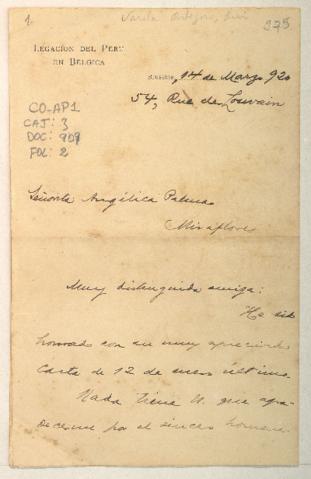 1.
Varela Orbegoso, Luis
975
LEGACIÓN DEL PERÚ
EN BÉLGICA
Bruselas, 14 de Marzo 920
54, Rue de Louvain
CO-AP1
CAJ: 3
DOC: 909
FOL: 2
Señorita Angélica Palma
Miraflores
Muy distinguida amiga:
He sido
honrado con su muy apreciada
carta de 12 de enero último.
Nada tiene U. que agra-
decerme por el sincero homena-